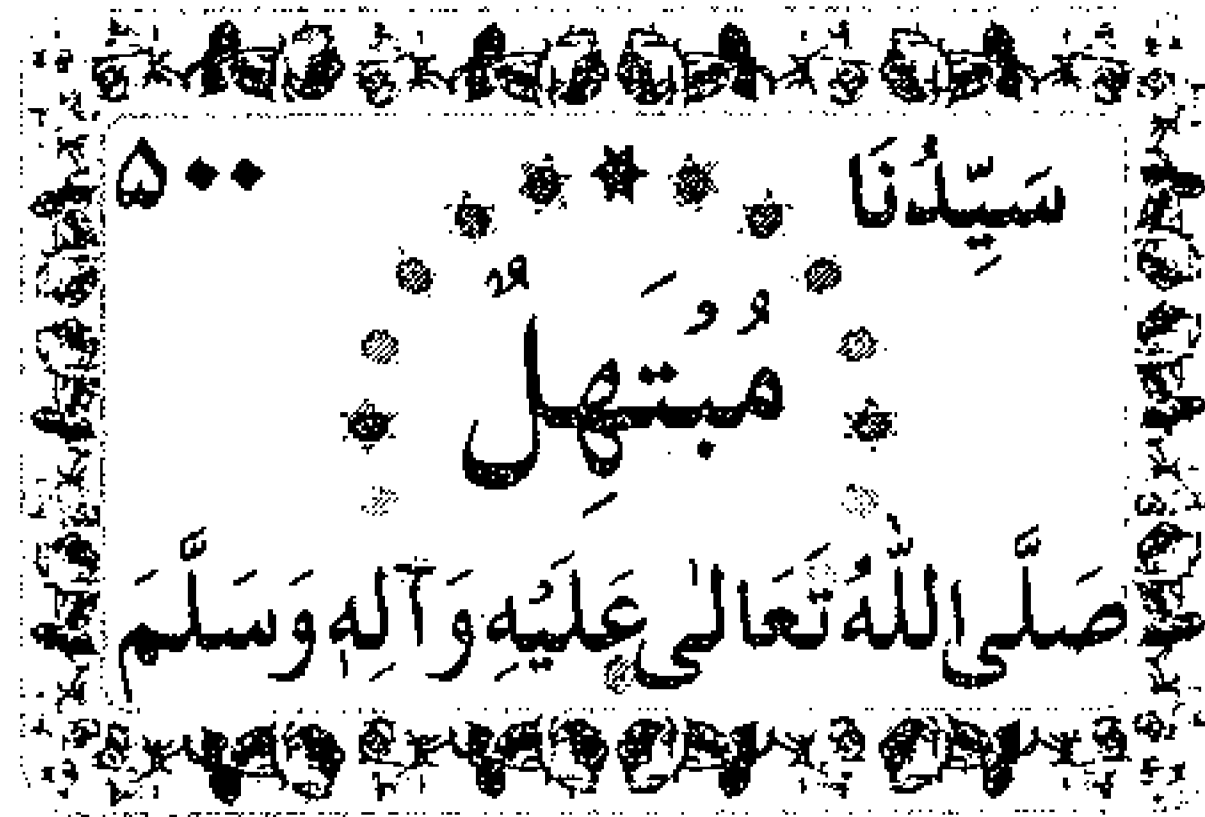 سَيِّدُنَا ۵۰۰
مُبْتَهِلٌ
صَلَّی اللّٰهُ تَعَالٰی عَلَیْهِ وَ آلِهٖ وَسَلَّمَ